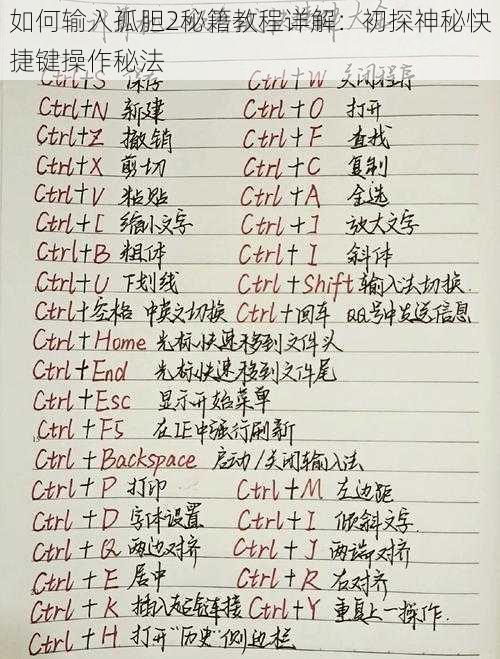 如何输入孤胆2秘籍教程详解：初探神秘快
捷键操作秘法
Ctrl+S 保存 Ctrl+W 关闭程序
Ctrl+N 新建 Ctrl+O 打开
Ctrl+Z 撤销 Ctrl+F 查找
Ctrl+X 剪切 Ctrl+C 复制
Ctrl+V 粘贴 Ctrl+A 全选
Ctrl+[ 缩小文字 Ctrl+] 放大文字
Ctrl+B 粗体 Ctrl+I 斜体
Ctrl+U 下划线 Ctrl+Shift 输入法切换.
Ctrl+空格 中英文切换 Ctrl+回车 QQ号中发送信息
Ctrl+Home 光标快速移到文件头
Ctrl+End 光标快速移到文件尾
Ctrl+Esc 显示开始菜单
Ctrl+F5 在IE中强行刷新
Ctrl+Backspace 启动/关闭输入法
Ctrl+P 打印 Ctrl+M 左边距
Ctrl+D 字体设置 Ctrl+I 倾斜文字.
Ctrl+Q 两边对齐 Ctrl+J 两端对齐
Ctrl+E 居中 Ctrl+R 右对齐
Ctrl+K 插入超链接 Ctrl+Y 重复上一操作.
Ctrl+H 打开"历史"侧边栏